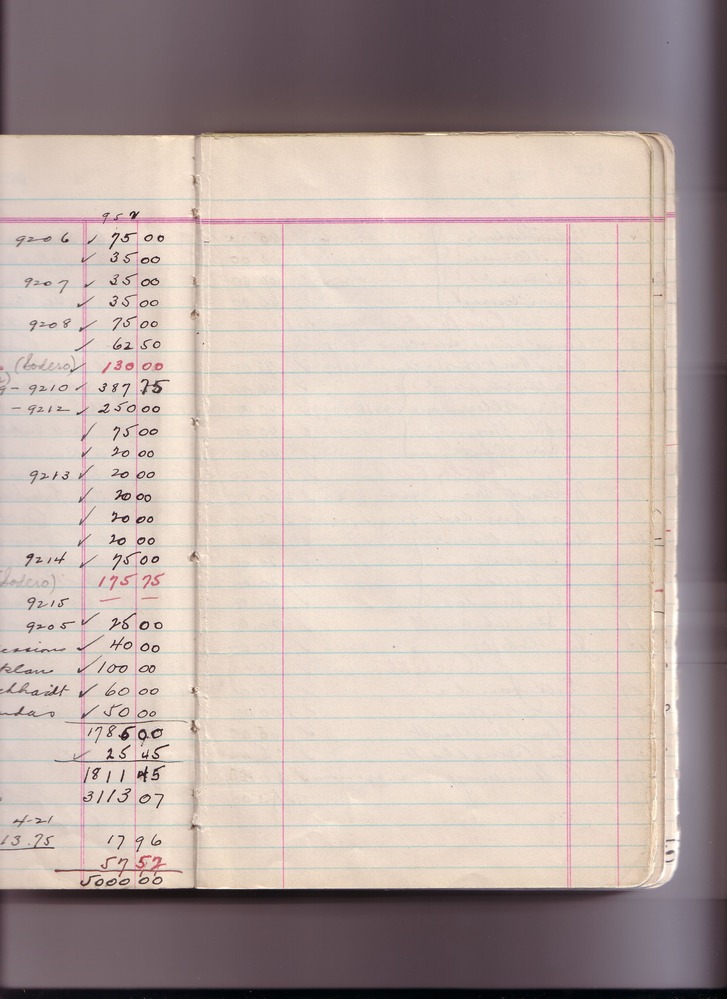 952
9206 ✓ 75 00
✓ 35 00
9207 ✓ 35 00
✓ 35 00
9208 ✓ 75 00
✓ 62 50
(Sodero) ✓ 130 00
9-9210 ✓ 387 75
-9212 ✓ 250 00
✓ 75 00
✓ 20 00
9213 ✓ 20 00
✓ 20 00
✓ 20 00
✓ 20 00
9214 ✓ 75 00
(Sodero) 175 75
9215 — —
9205 ✓ 25 00
essions ✓ 40 00
klan ✓ 100 00
ckhardt ✓ 60 00
ndas ✓ 50 00
1786 00
✓ 25 45
1811 45
3113 07
4-21
13.75 17 96
57 52
5000 00